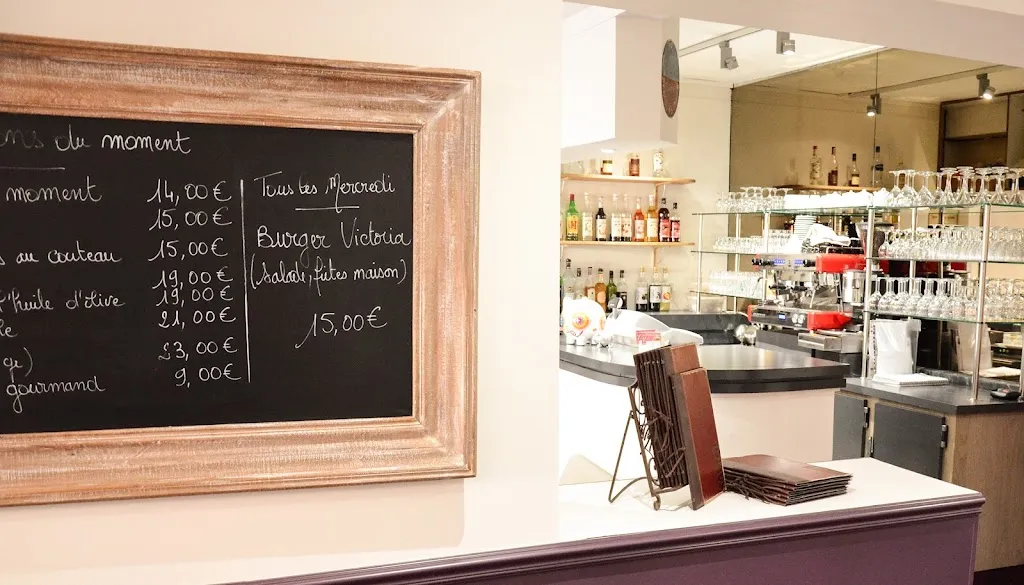 ons du moment
moment 14,00€
15,00€
au couteau 15,00€
19,00€
l'huile d'olive 19,00€
21,00€
23,00€
gourmand 9,00€
Tous les Mercredi
Burger Victoria
(Salade, frites maison)
15,00€